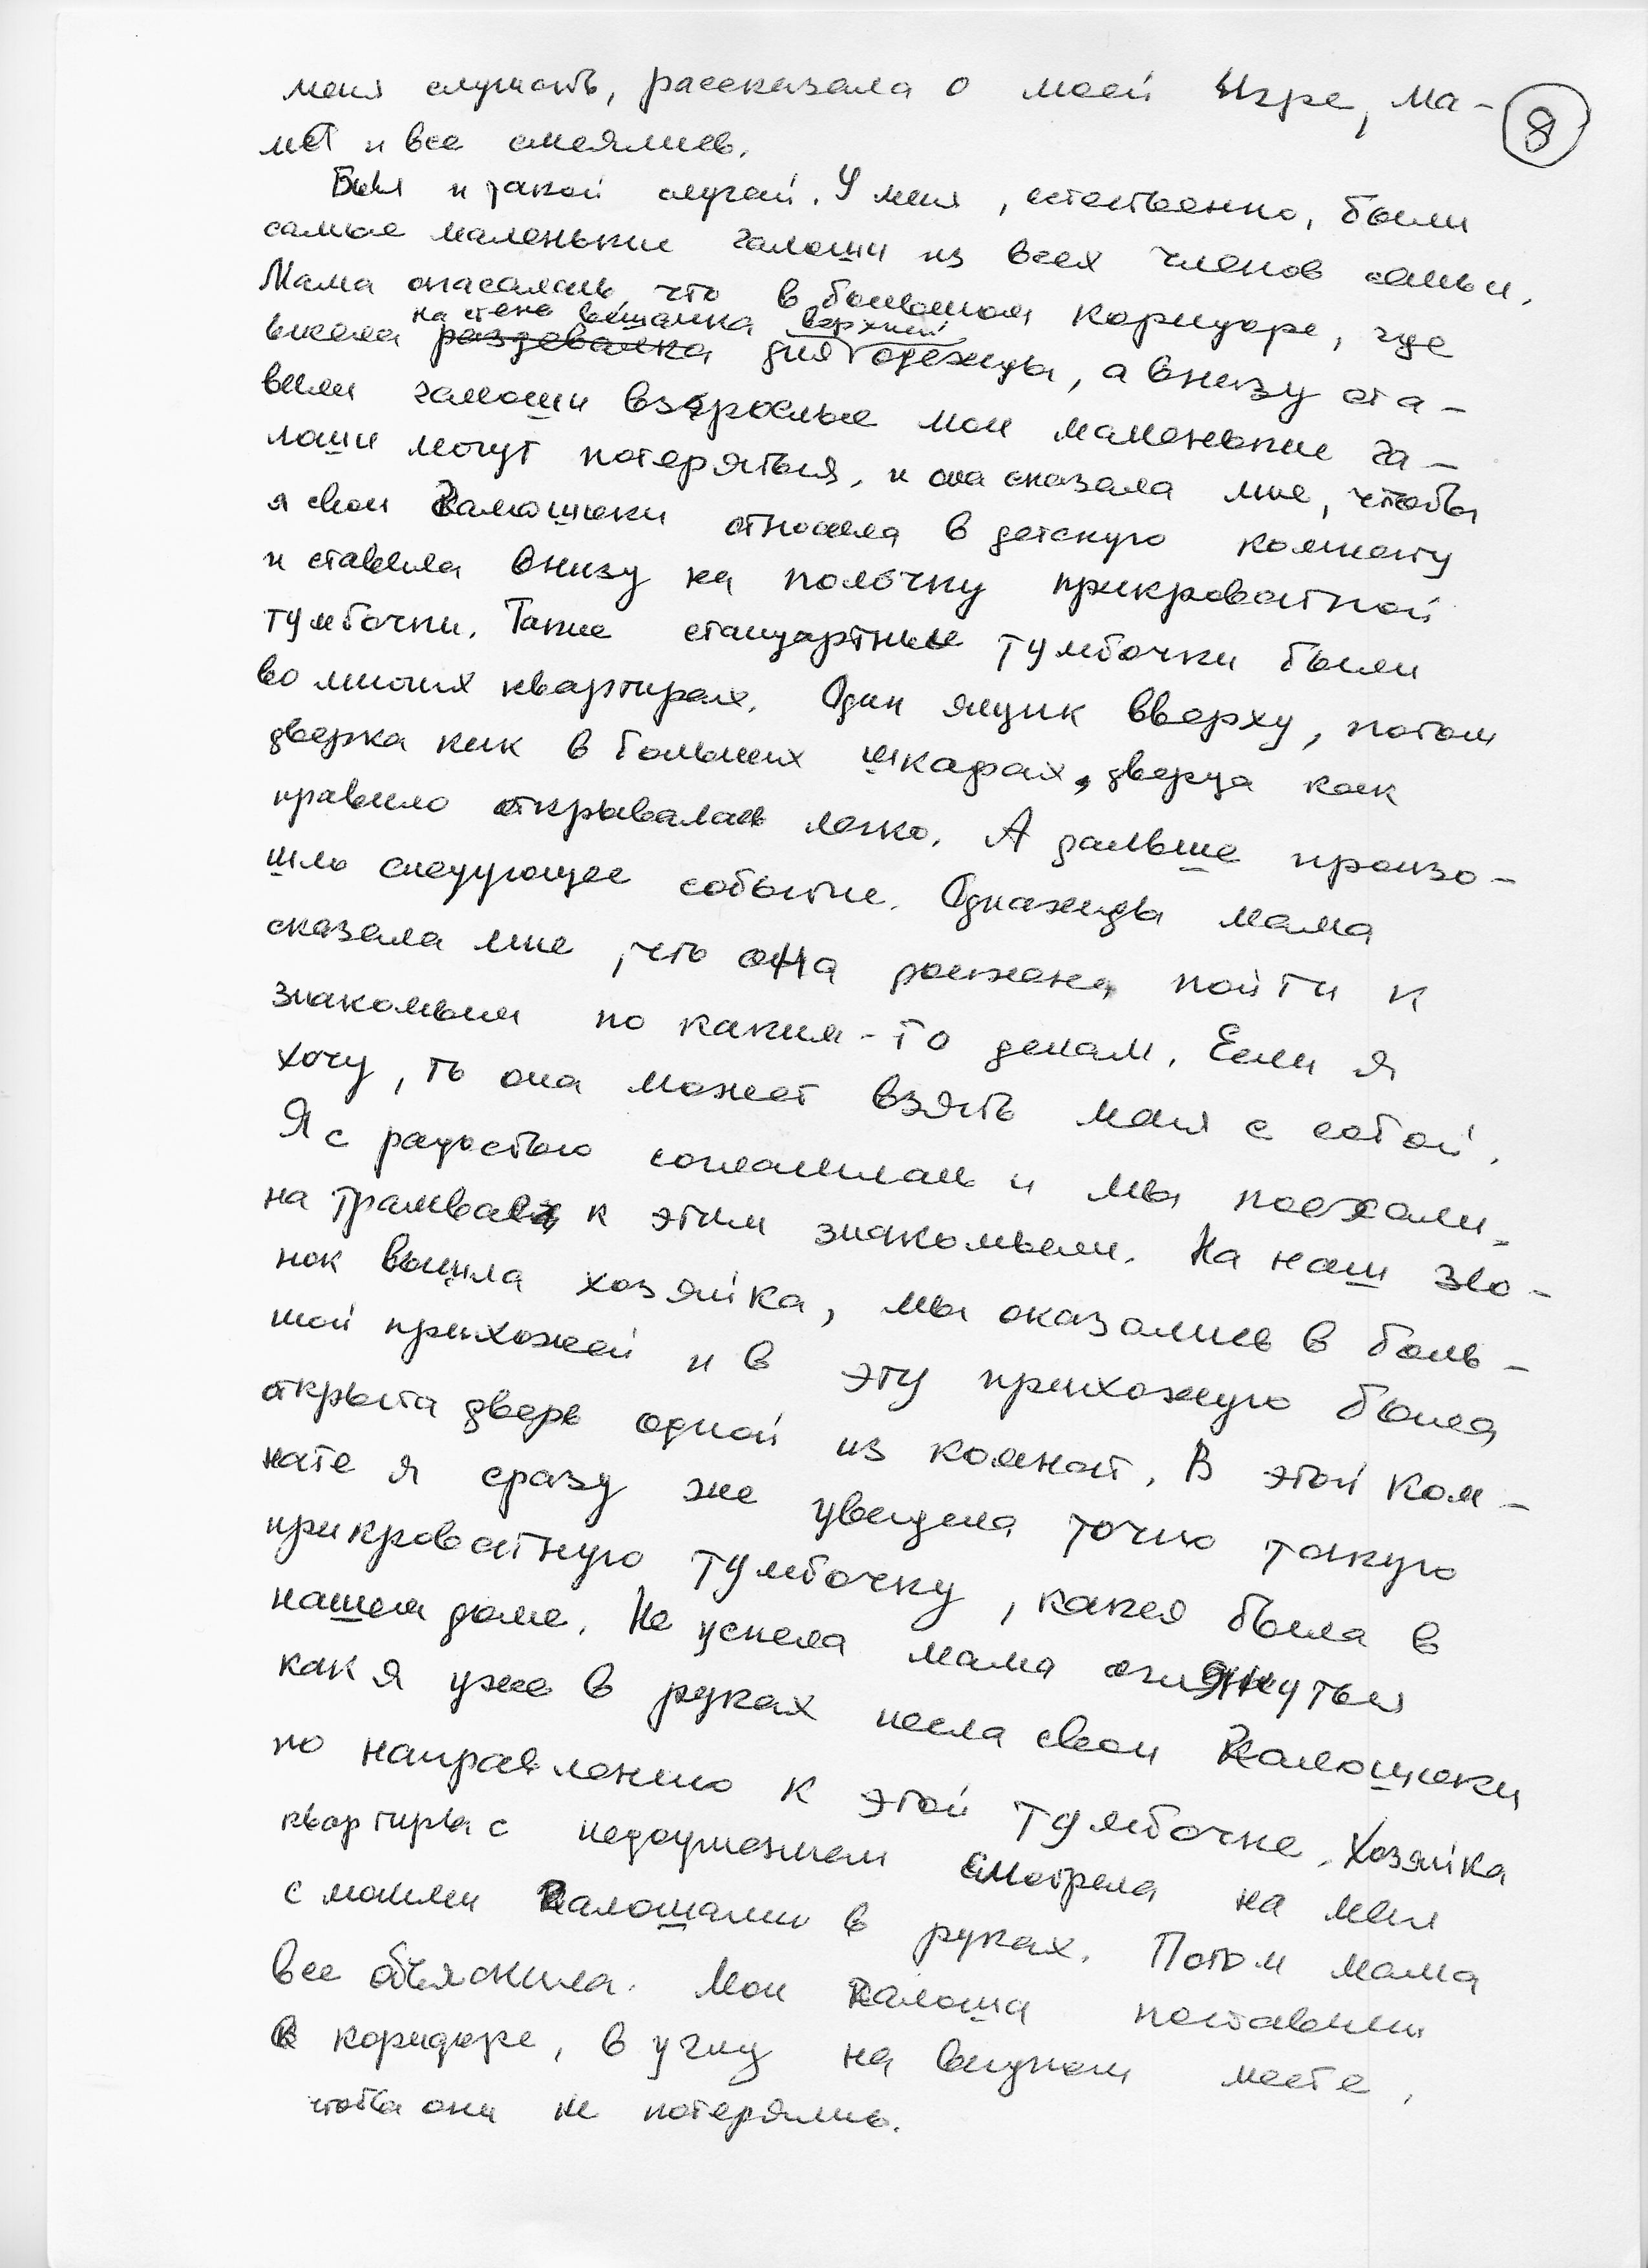 меня слушать, рассказала о моей Игре, ма-
ма и все смеялись.
8
Был и такой случай. У меня, естественно, были
самые маленькие галоши из всех членов семьи.
Мама опасалась что в большом коридоре, где
на стене вешалка верхней
висела раздевалка для одежды, а внизу ста-
вили галоши взрослые мои маленькие га-
лоши могут потеряться, и она сказала мне, чтобы
я свои галошики относила в детскую комнату
и ставила внизу на полочку прикроватной
тумбочки. Такие стандартные тумбочки были
во многих квартирах. Один ящик вверху, потом
дверка как в больших шкафах, дверца как
правило открывалась легко. А дальше произо-
шло следующее событие. Однажды мама
сказала мне, что она должна пойти к
знакомым по каким-то делам. Если я
хочу, то она может взять меня с собой.
Я с радостью согласилась и мы поехали
на трамвае к этим знакомым. На наш зво-
нок вышла хозяйка, мы оказались в боль-
шой прихожей и в эту прихожую была
открыта дверь одной из комнат. В этой ком-
нате я сразу же увидела точно такую
прикроватную тумбочку, какая была в
нашем доме. Не успела мама оглянуться
как я уже в руках несла свои галошики
по направлению к этой тумбочке. Хозяйка
квартиры с недоумением смотрела на меня
с моими галошами в руках. Потом мама
все объяснила. Мои галоши поставили
в коридоре, в углу на видном месте,
чтобы они не потерялись.